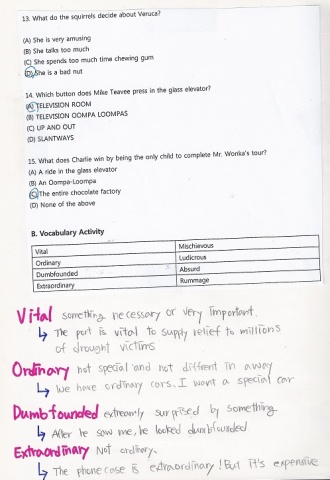 13. What do the squirrels decide about Veruca?
(A) She is very amusing
(B) She talks too much
(C) She spends too much time chewing gum
(D) She is a bad nut
14. Which button does Mike Teavee press in the glass elevator?
(A) TELEVISION ROOM
(B) TELEVISION OOMPA LOOMPAS
(C) UP AND OUT
(D) SLANTWAYS
15. What does Charlie win by being the only child to complete Mr. Wonka's tour?
(A) A ride in the glass elevator
(B) An Oompa-Loompa
(C) The entire chocolate factory
(D) None of the above
B. Vocabulary Activity
Vital Mischievous
Ordinary Ludicrous
Dumbfounded Absurd
Extraordinary Rummage
Vital something necessary or very important.
↳ The port is vital to supply relief to millions
of drought victims
Ordinary not special and not diffrent in away
↳ We have ordinary cars. I want a special car
Dumbfounded extreamly surprised by something
↳ After he saw me, he looked dumbfounded
Extraordinary Not ordinary.
↳ The phone case is extraordinary! But it's expensive